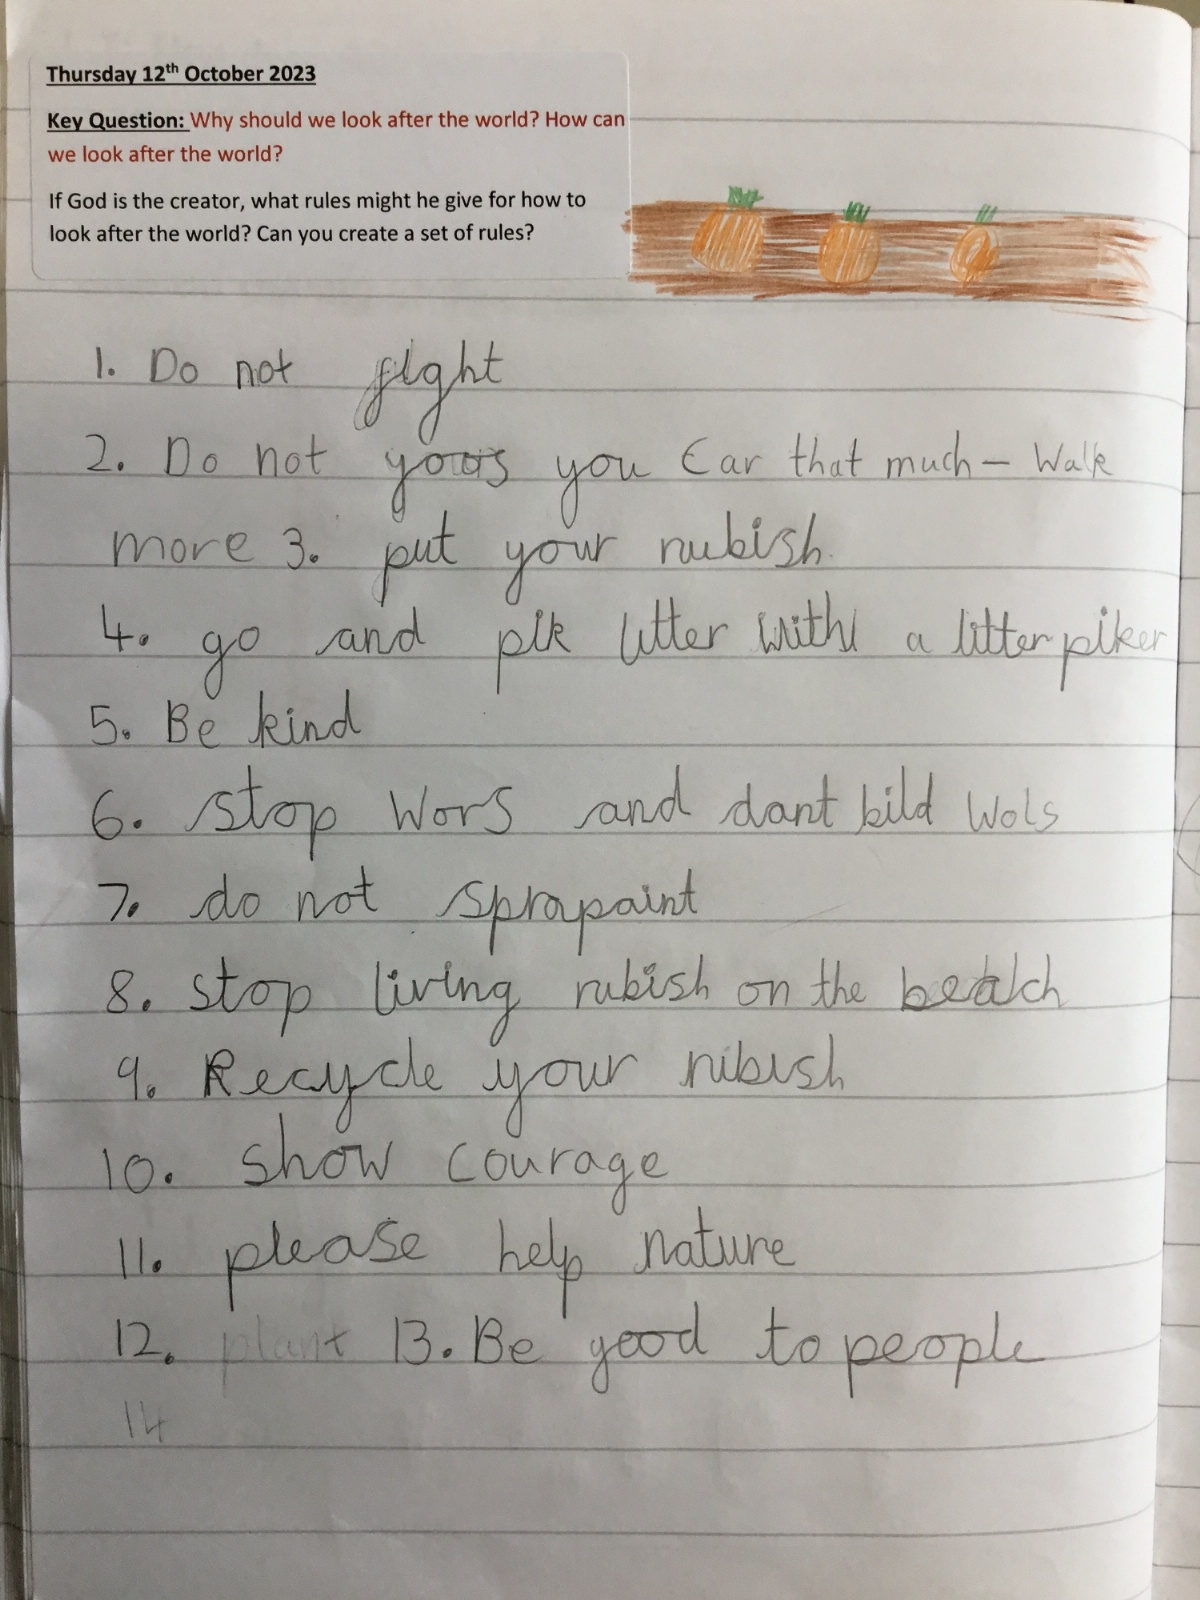 Thursday 12th October 2023
Key Question: Why should we look after the world? How can
we look after the world?
If God is the creator, what rules might he give for how to
look after the world? Can you create a set of rules?
1. Do not fight
2. Do not you Car that much - Walk
more 3. put your rubish.
4. go and pik litter with a litter piker
5. Be kind
6. stop wors and dant bild wols
7. do not sprapaint
8. stop living rubish on the beatch
9. Recycle your ribish
10. show courage
11. please help nature
12. plant 13. Be good to people
14